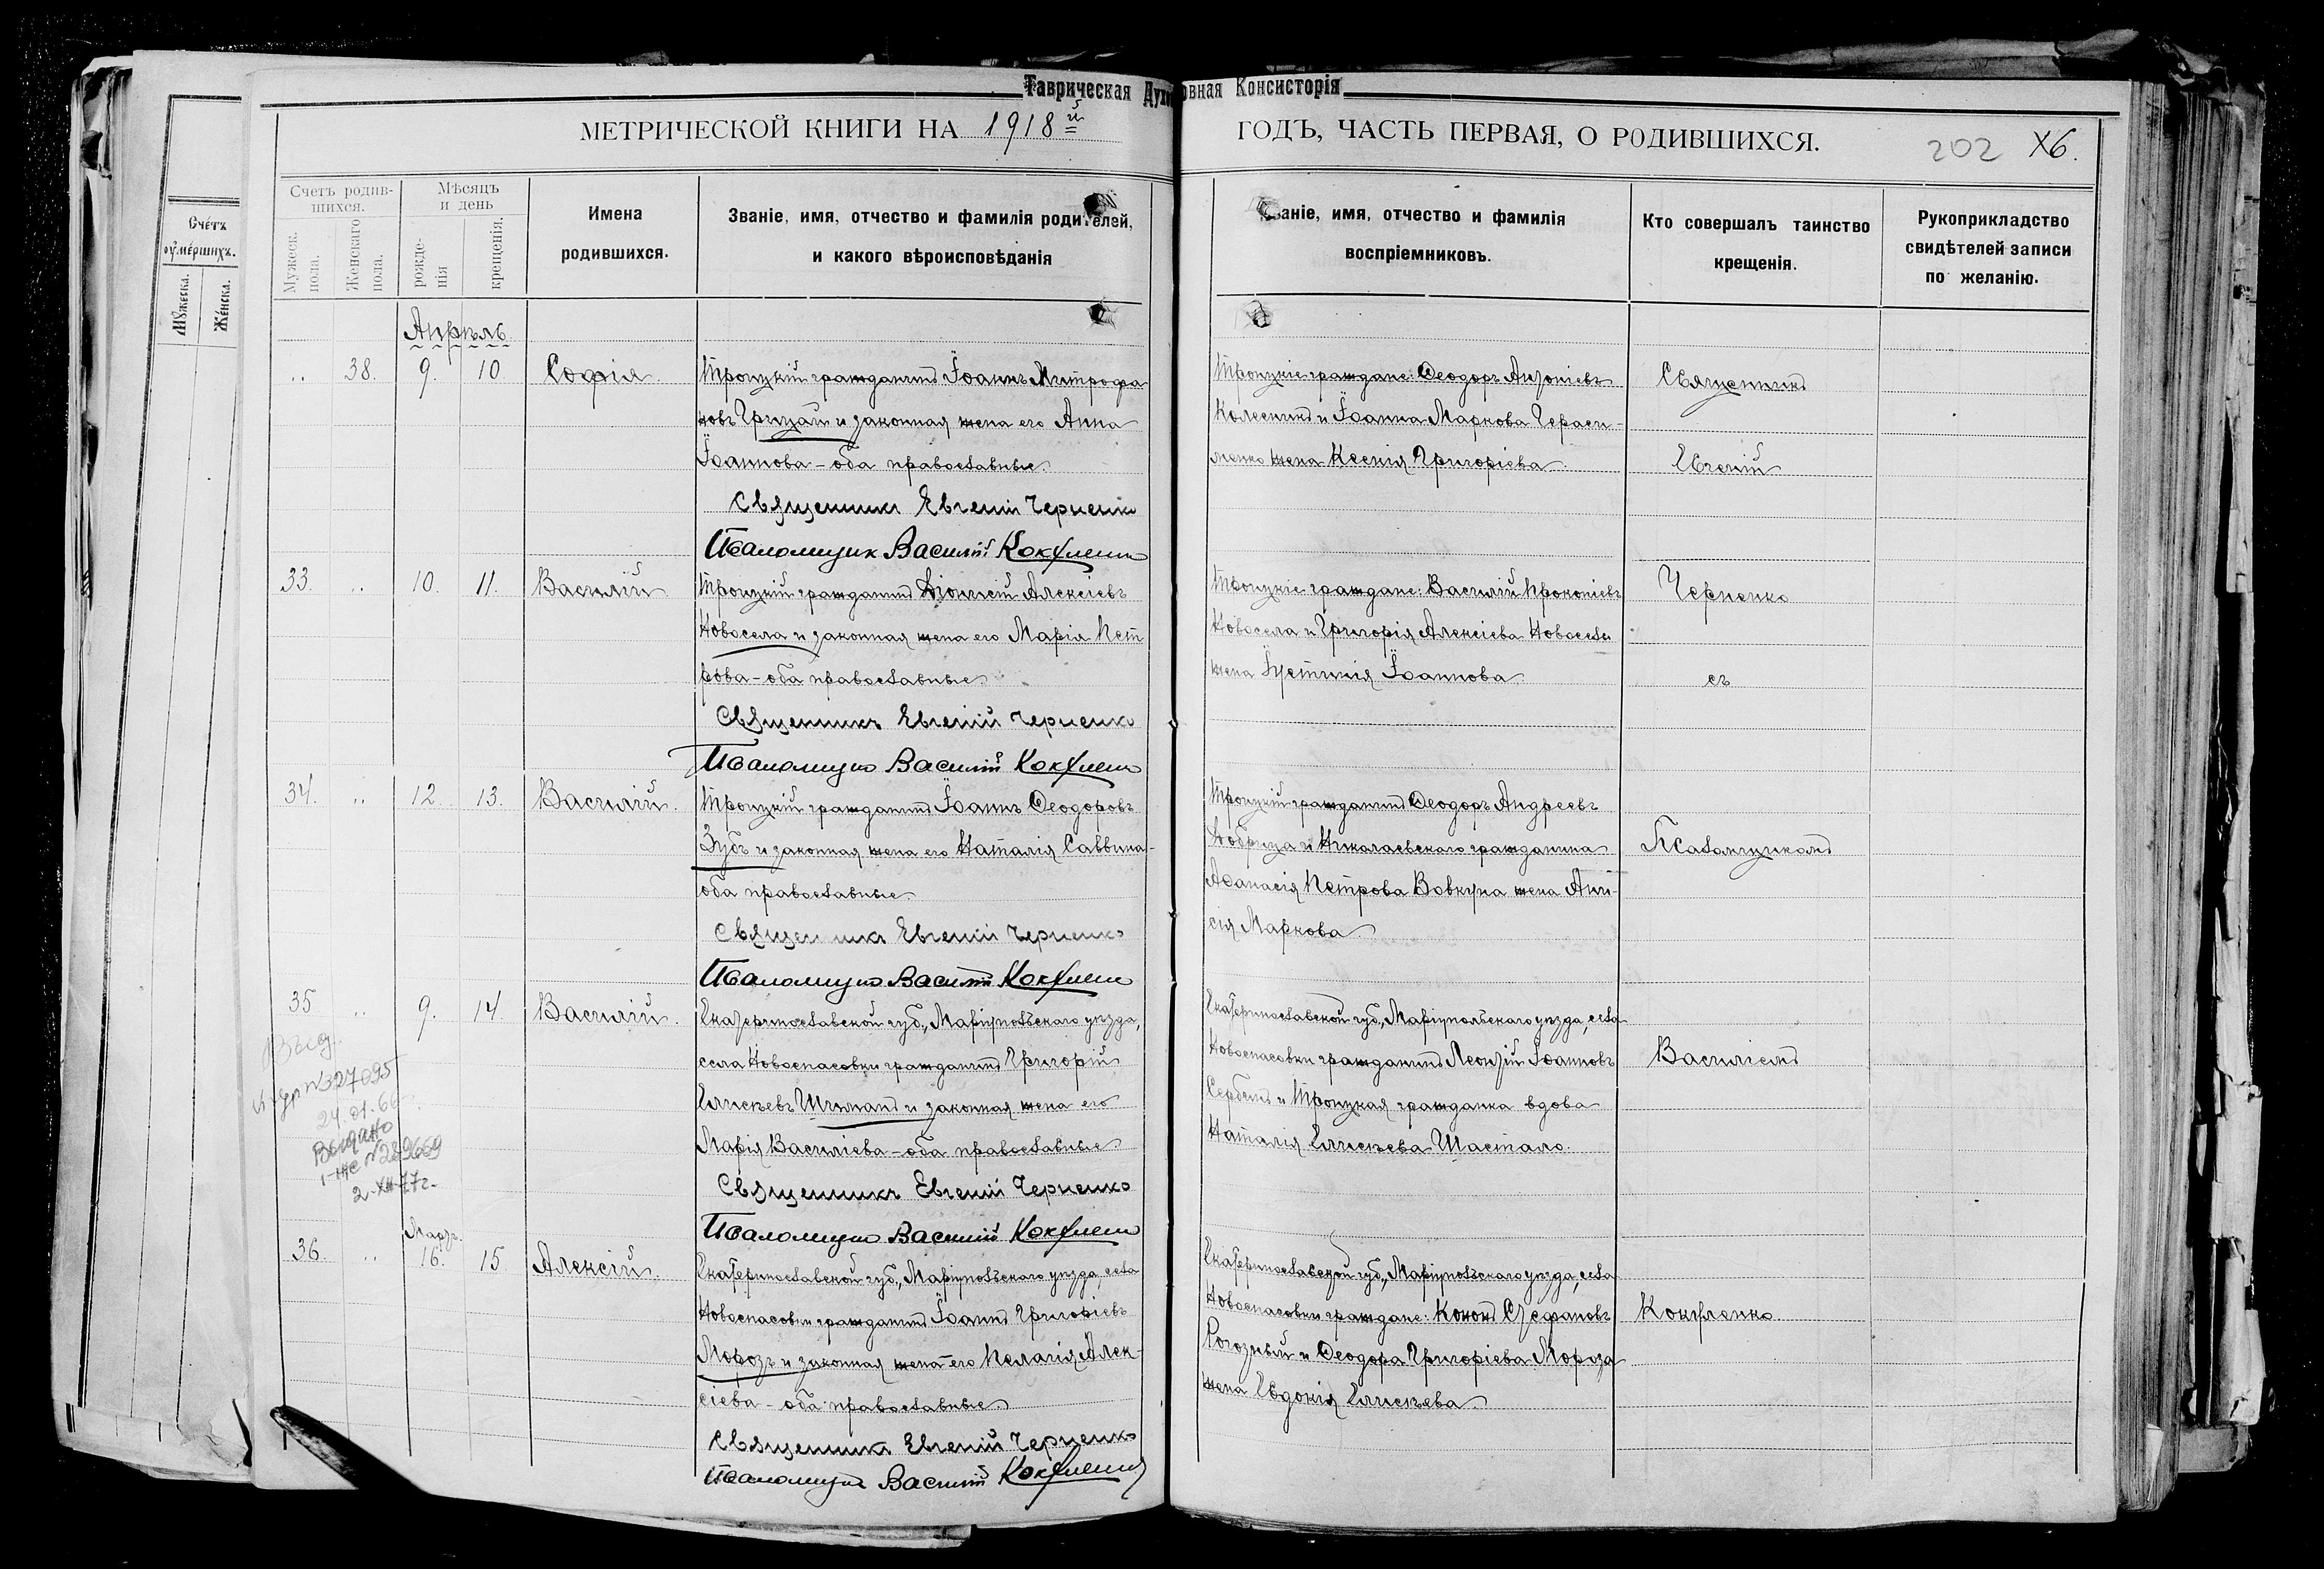 Таврическая Духовная Консисторія
МЕТРИЧЕСКОЙ КНИГИ НА 1918й ГОДЪ, ЧАСТЬ ПЕРВАЯ, О РОДИВШИХСЯ.
202 Х6.
Счетъ
оумершихъ.
Мужеска.
Женска.
Счетъ родив-
шихся.
Мужеск.
пола.
Женскаго
пола.
Мѣсяцъ
и день
рожде-
нія
крещенія.
Имена
родившихся.
Званіе, имя, отчество и фамилія родителей,
и какого вѣроисповѣданія
Званіе, имя, отчество и фамилія
воспріемниковъ.
Кто совершалъ таинство
крещенія.
Рукоприкладство
свидѣтелей записи
по желанію.
Апрѣль
38. 9. 10. Софія.
Троицкій гражданинъ Іоаннъ Митрофа
новъ Грицай и законная жена его Анна
Іоаннова - оба православные.
Священникъ Евгеній Черненко
Псаломщик Василій
Троицкіе граждане: Ѳеодоръ Антоніевъ
Колесникъ и Іоанна Маркова Гераси-
менко жена Ксенія Григоріева.
Священникъ
Евгеній
33. 10. 11. Василій
Троицкій гражданинъ Діонисій Алексіевъ
Новосела и законная жена его Марія Пет
рова - оба православные.
Священникъ Евгеній Черненко
Псаломщикъ Василій
Троицкіе граждане: Василій Прокопіевъ
Новосела и Григорія Алексіева Новоселы
жена Іустинія Іоаннова.
Черненко
съ
34. 12. 13. Василій.
Троицкій гражданинъ Іоаннъ Ѳеодоровъ
Зубъ и законная жена его Наталія Саввина-
оба православные.
Священникъ Евгеній Черненко
Псаломщикъ Василій
Троицкій гражданинъ Ѳеодоръ Андреевъ
Добрица и Николаевскаго гражданина
Аѳанасія Петрова Вовкуна жена Ани-
сія Маркова.
Псаломщикомъ
35 9. 14. Василій.
Екатеринославской губ., Маріупольскаго уѣзда,
села Новоспасовки гражданинъ Григорій
Елисѣевъ Шиманъ и законная жена его
Марія Василіева - оба православные.
Священникъ Евгеній Черненко
Псаломщикъ Василій
Екатеринославской губ., Маріупольскаго уѣзда, села
Новоспасовки гражданинъ Леонтій Іоанновъ
Сербинъ и Троицкая гражданка вдова
Наталія Елисѣева Шастало.
Василіемъ
№327095
24.01.66
Выдано
№289669
2-XII-77г.
36. Март. 16. 15. Алексій.
Екатеринославской губ., Маріупольскаго уѣзда, села
Новоспасовки гражданинъ Іоаннъ Григоріевъ
Морозъ и законная жена его Пелагія Алек-
сіева - оба православные
Священникъ Евгеній Черненко
Псаломщикъ Василій
Екатеринославской губ., Маріупольскаго уѣзда, села
Новоспасовки граждане: Кононъ Стефановъ
и Ѳеодора Григоріева Мороза
жена Евдокія Елисѣева.